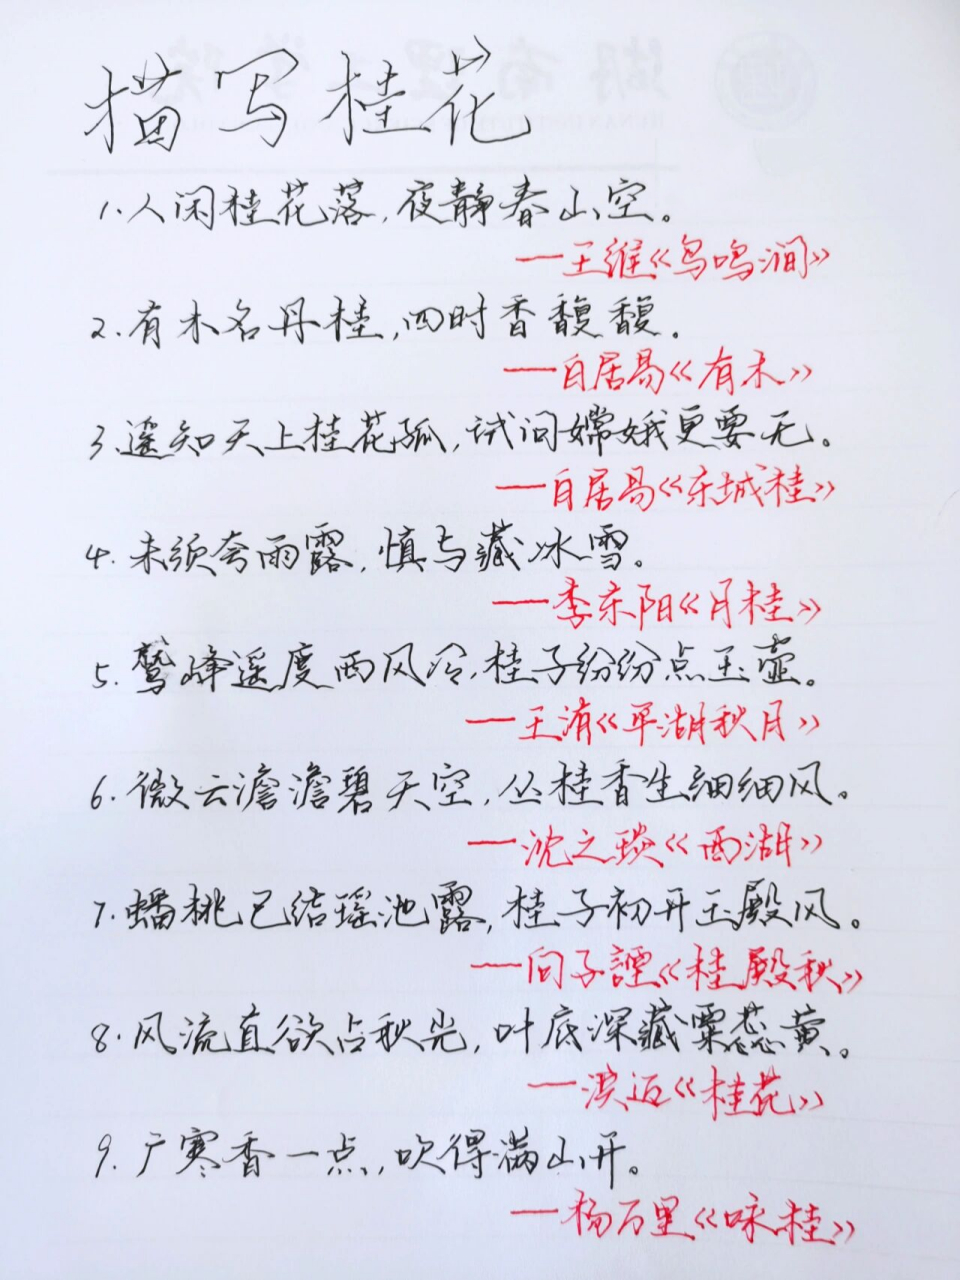 描写桂花
1.人闲桂花落,夜静春山空。
—王维《鸟鸣涧》
2.有木名丹桂,四时香馥馥.
—白居易《有木》
3.遥知天上桂花孤,试问嫦娥更要无。
—白居易《东城桂》
4.未须夸雨露,慎与藏冰雪。
—李东阳《月桂》
5.鹫峰遥度西风冷,桂子纷纷点玉壶。
—王洧《平湖秋月》
6.微云澹澹碧天空,丛桂香生细细风。
—沈之琰《西湖》
7.蟠桃已结瑶池露,桂子初开玉殿风。
—向子諲《桂殿秋》
8.风流直欲占秋光,叶底深藏粟蕊黄。
—《桂花》
9.广寒香一点,吹得满山开。
—杨万里《咏桂》